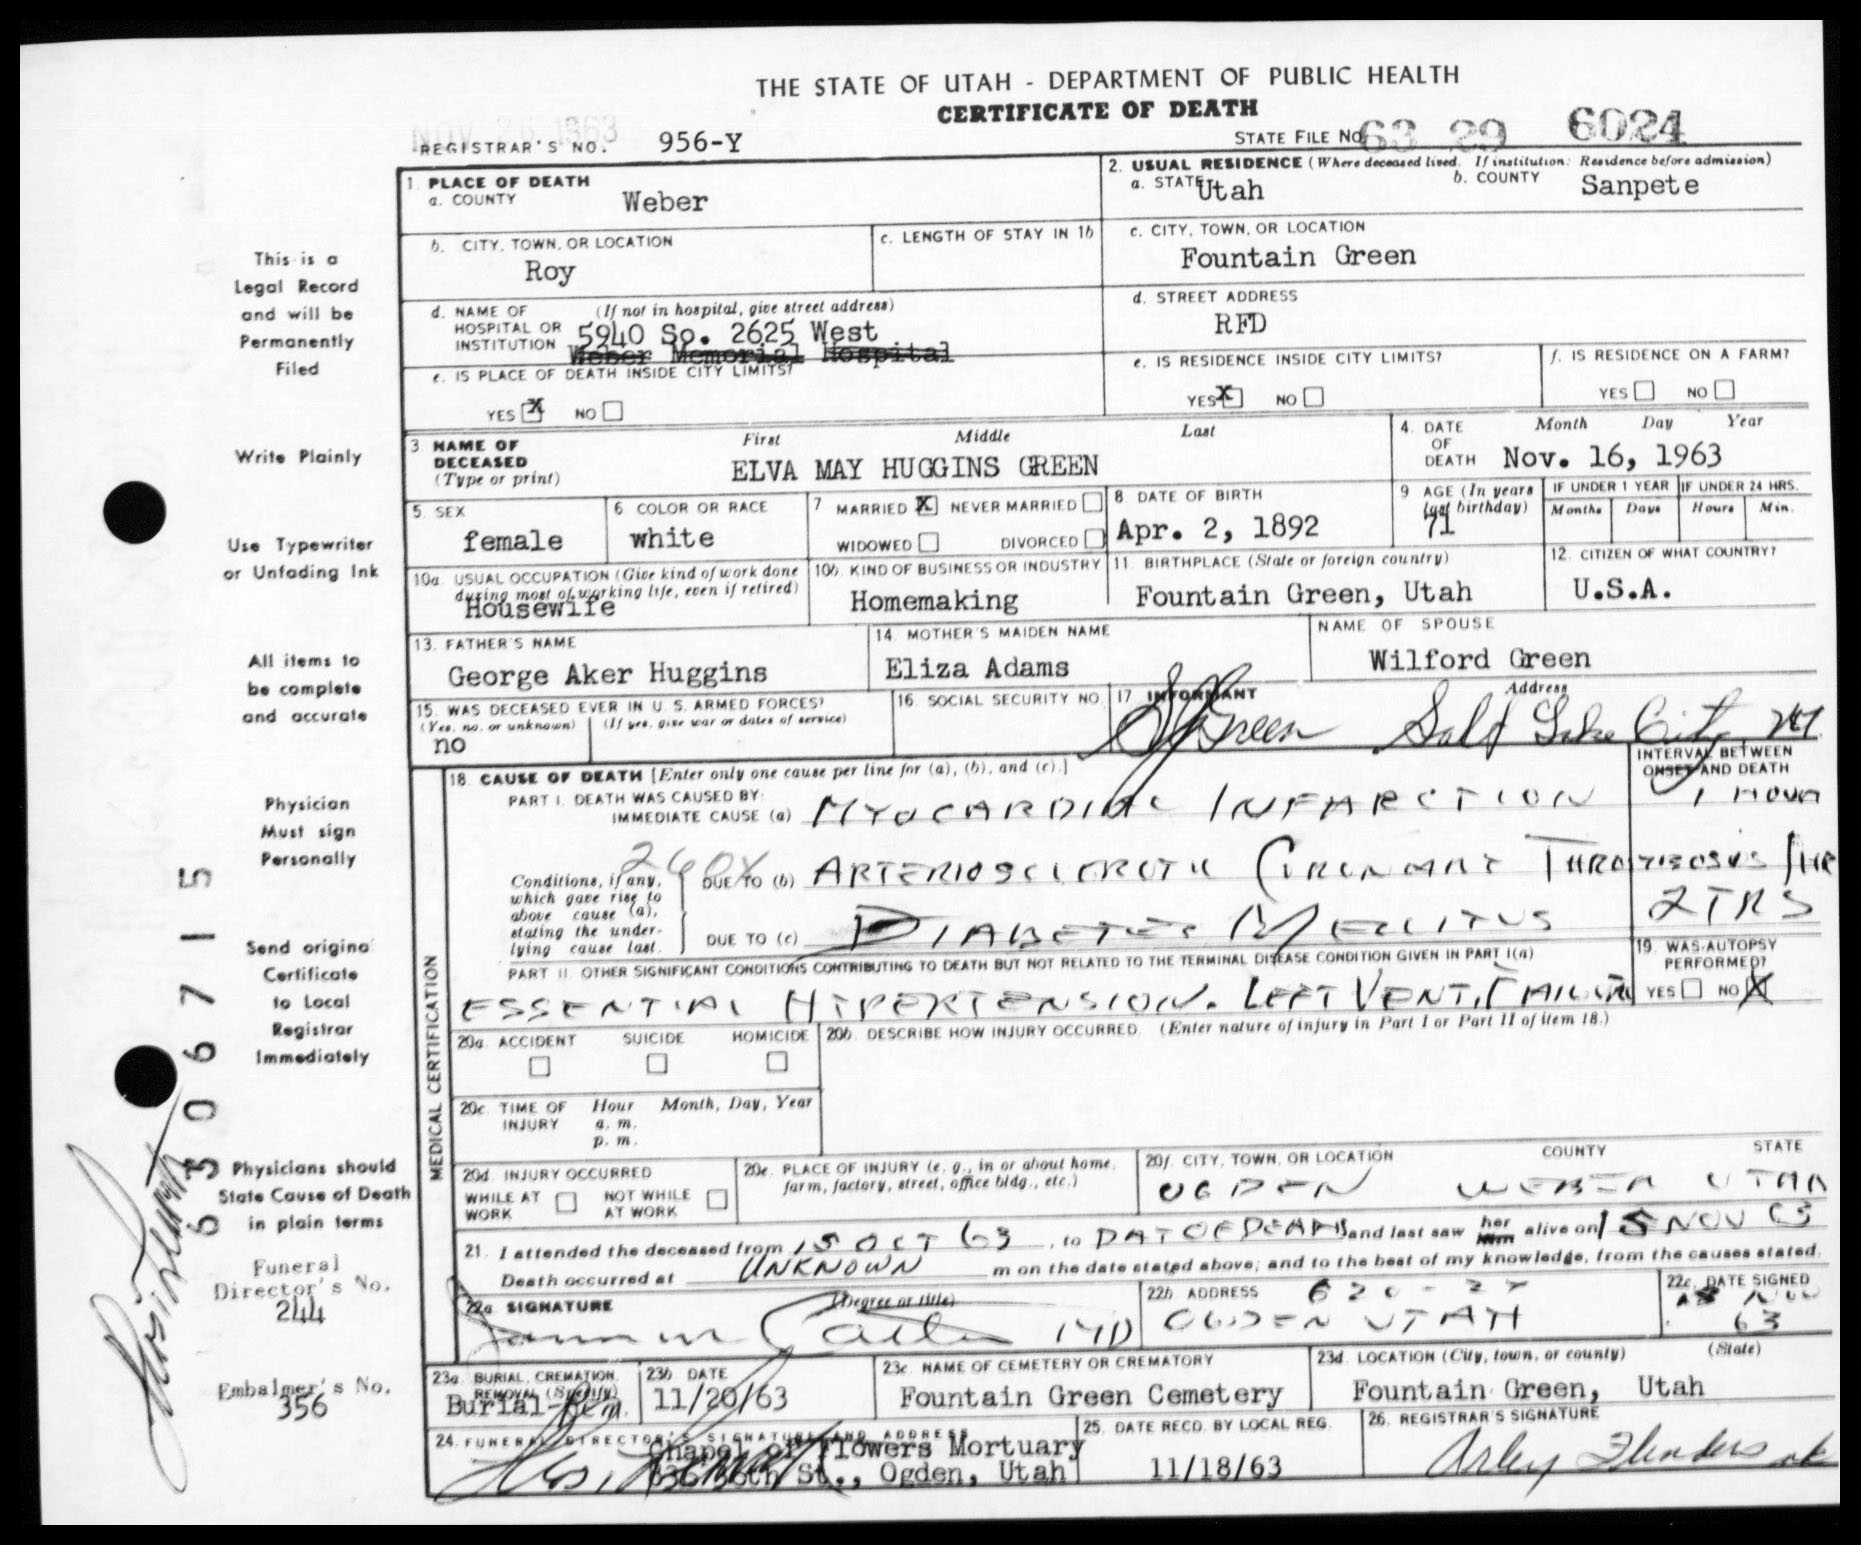 THE STATE OF UTAH - DEPARTMENT OF PUBLIC HEALTH
CERTIFICATE OF DEATH
NOV 26 1963
REGISTRAR'S NO. 956-Y
STATE FILE NO. 63 29 6024
1. PLACE OF DEATH
a. COUNTY Weber
2. USUAL RESIDENCE (Where deceased lived. If institution: Residence before admission)
a. STATE Utah b. COUNTY Sanpete
b. CITY, TOWN, OR LOCATION Roy
c. LENGTH OF STAY IN 1b
c. CITY, TOWN, OR LOCATION
Fountain Green
d. NAME OF HOSPITAL OR INSTITUTION (If not in hospital, give street address)
5940 So. 2625 West
Weber Memorial Hospital
d. STREET ADDRESS
RFD
e. IS PLACE OF DEATH INSIDE CITY LIMITS?
YES X NO
e. IS RESIDENCE INSIDE CITY LIMITS?
YES X NO
f. IS RESIDENCE ON A FARM?
YES NO
3. NAME OF DECEASED (Type or print) First Middle Last
ELVA MAY HUGGINS GREEN
4. DATE OF DEATH Month Day Year
Nov. 16, 1963
5. SEX
female
6 COLOR OR RACE
white
7 MARRIED X NEVER MARRIED
WIDOWED DIVORCED
8 DATE OF BIRTH
Apr. 2, 1892
9 AGE (In years last birthday)
71
IF UNDER 1 YEAR Months Days
IF UNDER 24 HRS. Hours Min.
10a. USUAL OCCUPATION (Give kind of work done during most of working life, even if retired)
Housewife
10b. KIND OF BUSINESS OR INDUSTRY
Homemaking
11. BIRTHPLACE (State or foreign country)
Fountain Green, Utah
12. CITIZEN OF WHAT COUNTRY?
U.S.A.
13. FATHER'S NAME
George Aker Huggins
14. MOTHER'S MAIDEN NAME
Eliza Adams
NAME OF SPOUSE
Wilford Green
15. WAS DECEASED EVER IN U. S. ARMED FORCES?
(Yes, no, or unknown) (If yes, give war or dates of service)
no
16. SOCIAL SECURITY NO.
17 INFORMANT Address
Green Salt Lake City
18. CAUSE OF DEATH [Enter only one cause per line for (a), (b), and (c).]
INTERVAL BETWEEN ONSET AND DEATH
PART I. DEATH WAS CAUSED BY:
IMMEDIATE CAUSE (a) MYOCARDIAL INFARCTION 1 HOUR
260X
Conditions, if any, which gave rise to above cause (a), stating the underlying cause last.
DUE TO (b) ARTERIOSCLEROTIC CORONARY THROMBOSIS 1 HR
DUE TO (c) DIABETES MELLITUS 2 YRS
PART II. OTHER SIGNIFICANT CONDITIONS CONTRIBUTING TO DEATH BUT NOT RELATED TO THE TERMINAL DISEASE CONDITION GIVEN IN PART I(a)
ESSENTIAL HYPERTENSION. LEFT VENT. FAILURE
19. WAS AUTOPSY PERFORMED?
YES NO X
MEDICAL CERTIFICATION
20a. ACCIDENT SUICIDE HOMICIDE
20b. DESCRIBE HOW INJURY OCCURRED. (Enter nature of injury in Part I or Part II of item 18.)
20c. TIME OF INJURY Hour a. m. p. m. Month, Day, Year
20d. INJURY OCCURRED
WHILE AT WORK NOT WHILE AT WORK
20e. PLACE OF INJURY (e. g., in or about home, farm, factory, street, office bldg., etc.)
20f. CITY, TOWN, OR LOCATION COUNTY STATE
OGDEN WEBER UTAH
21. I attended the deceased from 15 OCT 63, to DAT OF DEATH and last saw her him alive on 15 NOV 63
Death occurred at UNKNOWN m on the date stated above; and to the best of my knowledge, from the causes stated.
22a. SIGNATURE (Degree or title)
MD
22b. ADDRESS
OGDEN UTAH
22c. DATE SIGNED
NOV 63
23a. BURIAL, CREMATION, REMOVAL (Specify)
Burial-Rem.
23b DATE
11/20/63
23c. NAME OF CEMETERY OR CREMATORY
Fountain Green Cemetery
23d. LOCATION (City, town, or county) (State)
Fountain Green, Utah
24. FUNERAL DIRECTOR'S SIGNATURE AND ADDRESS
Chapel of Flowers Mortuary
836 36th St., Ogden, Utah
25. DATE RECD. BY LOCAL REG.
11/18/63
26. REGISTRAR'S SIGNATURE
This is a
Legal Record
and will be
Permanently
Filed
Write Plainly
Use Typewriter
or Unfading Ink
All items to
be complete
and accurate
Physician
Must sign
Personally
Send original
Certificate
to Local
Registrar
Immediately
Physicians should
State Cause of Death
in plain terms
Funeral
Director's No.
244
Embalmer's No.
356
63 06715